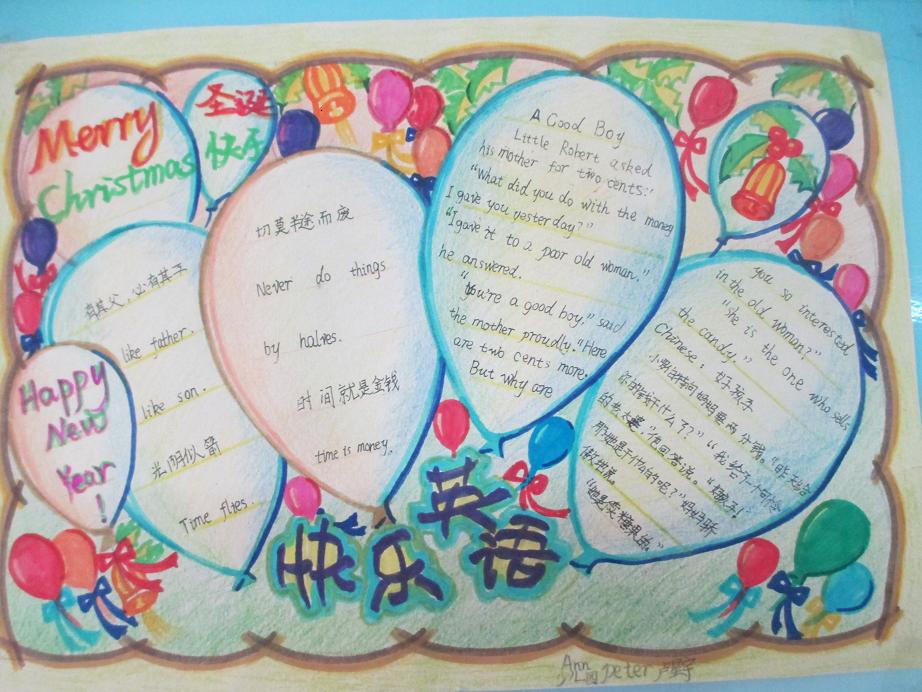 Merry
Christmas
圣诞
快乐
有其父，必有其子
like father.
like son.
光阴似箭
Time flies.
Happy
New
Year
!
切莫半途而废
Never do things
by halves.
时间就是金钱
time is money.
A Good Boy
Little Robert asked
his mother for two cents.
"What did you do with the money
I gave you yesterday?"
"I gave it to a poor old woman."
he answered.
"You're a good boy." said
the mother proudly. "Here
are two cents more.
But why are
you so interested
in the old woman?"
"she is the one who sells
the candy."
Chinese: 好孩子
小罗伯特向妈妈要两分钱。"昨天给
你的钱干什么了？" "我给了一个可怜
的老太婆"他回答说。
那她是干什么的呢？"妈妈骄
傲地说。
"她是卖糖果的。"
快乐英语
Ann
peter